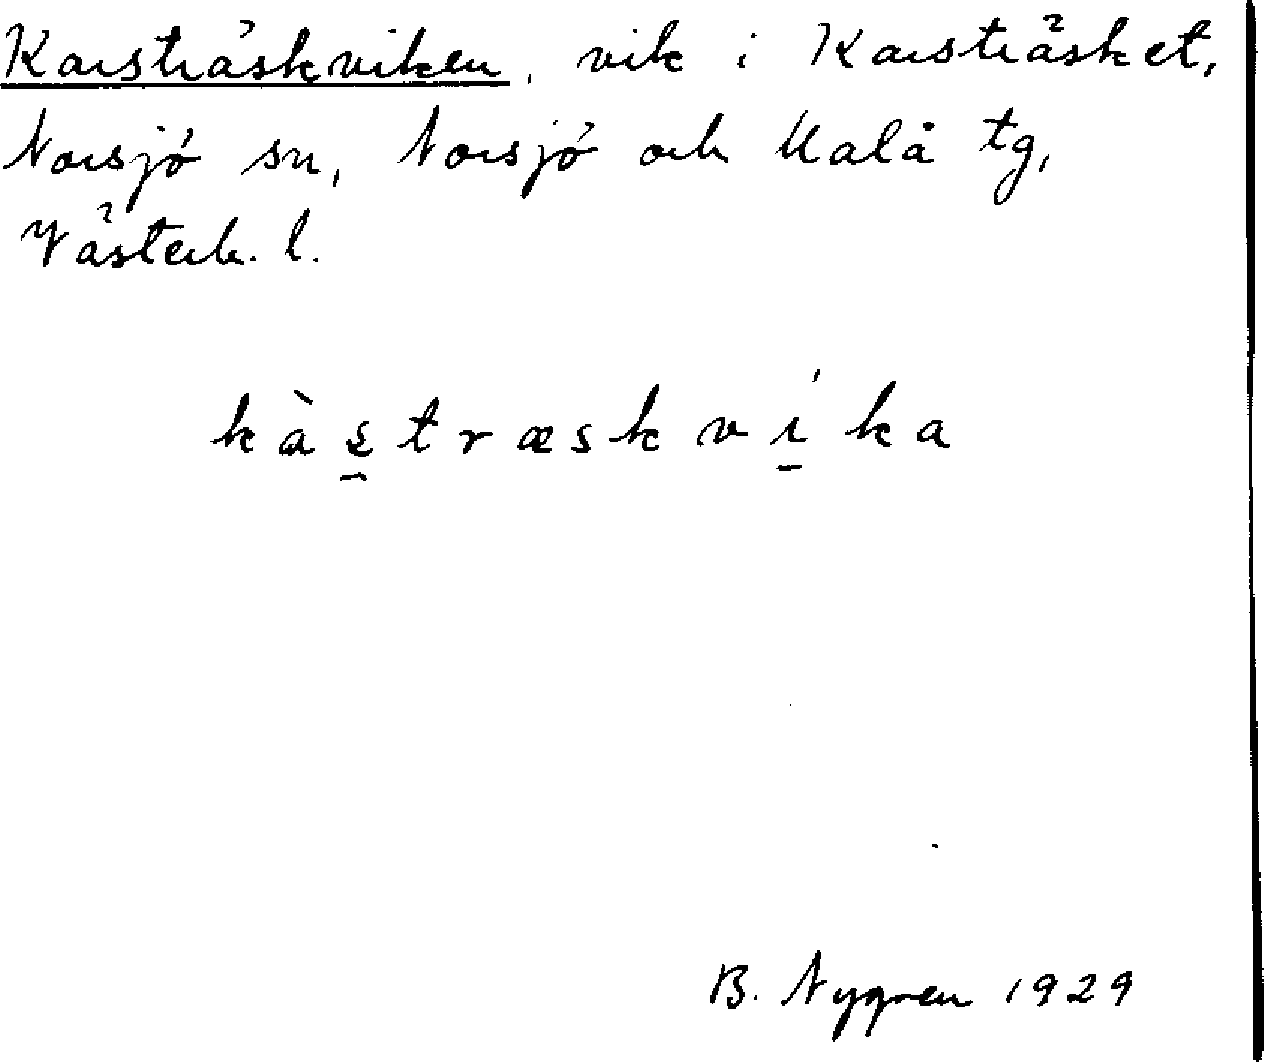 Karsträskviken, vik i Karsträsket,
Norsjö sn, Norsjö och Malå tg,
Västerb. l.
kàs̱træskvı̱́ka
B. Nygren 1929